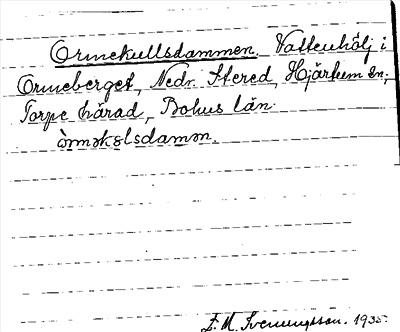 Ormekullsdammen. Vattenhölj i
Ormeberget, Nedr. Stered, Hjärtum sn,
Torpe härad, Bohus län.
òrməkəlsdamən.
E. M. Svenungsson. 1935.